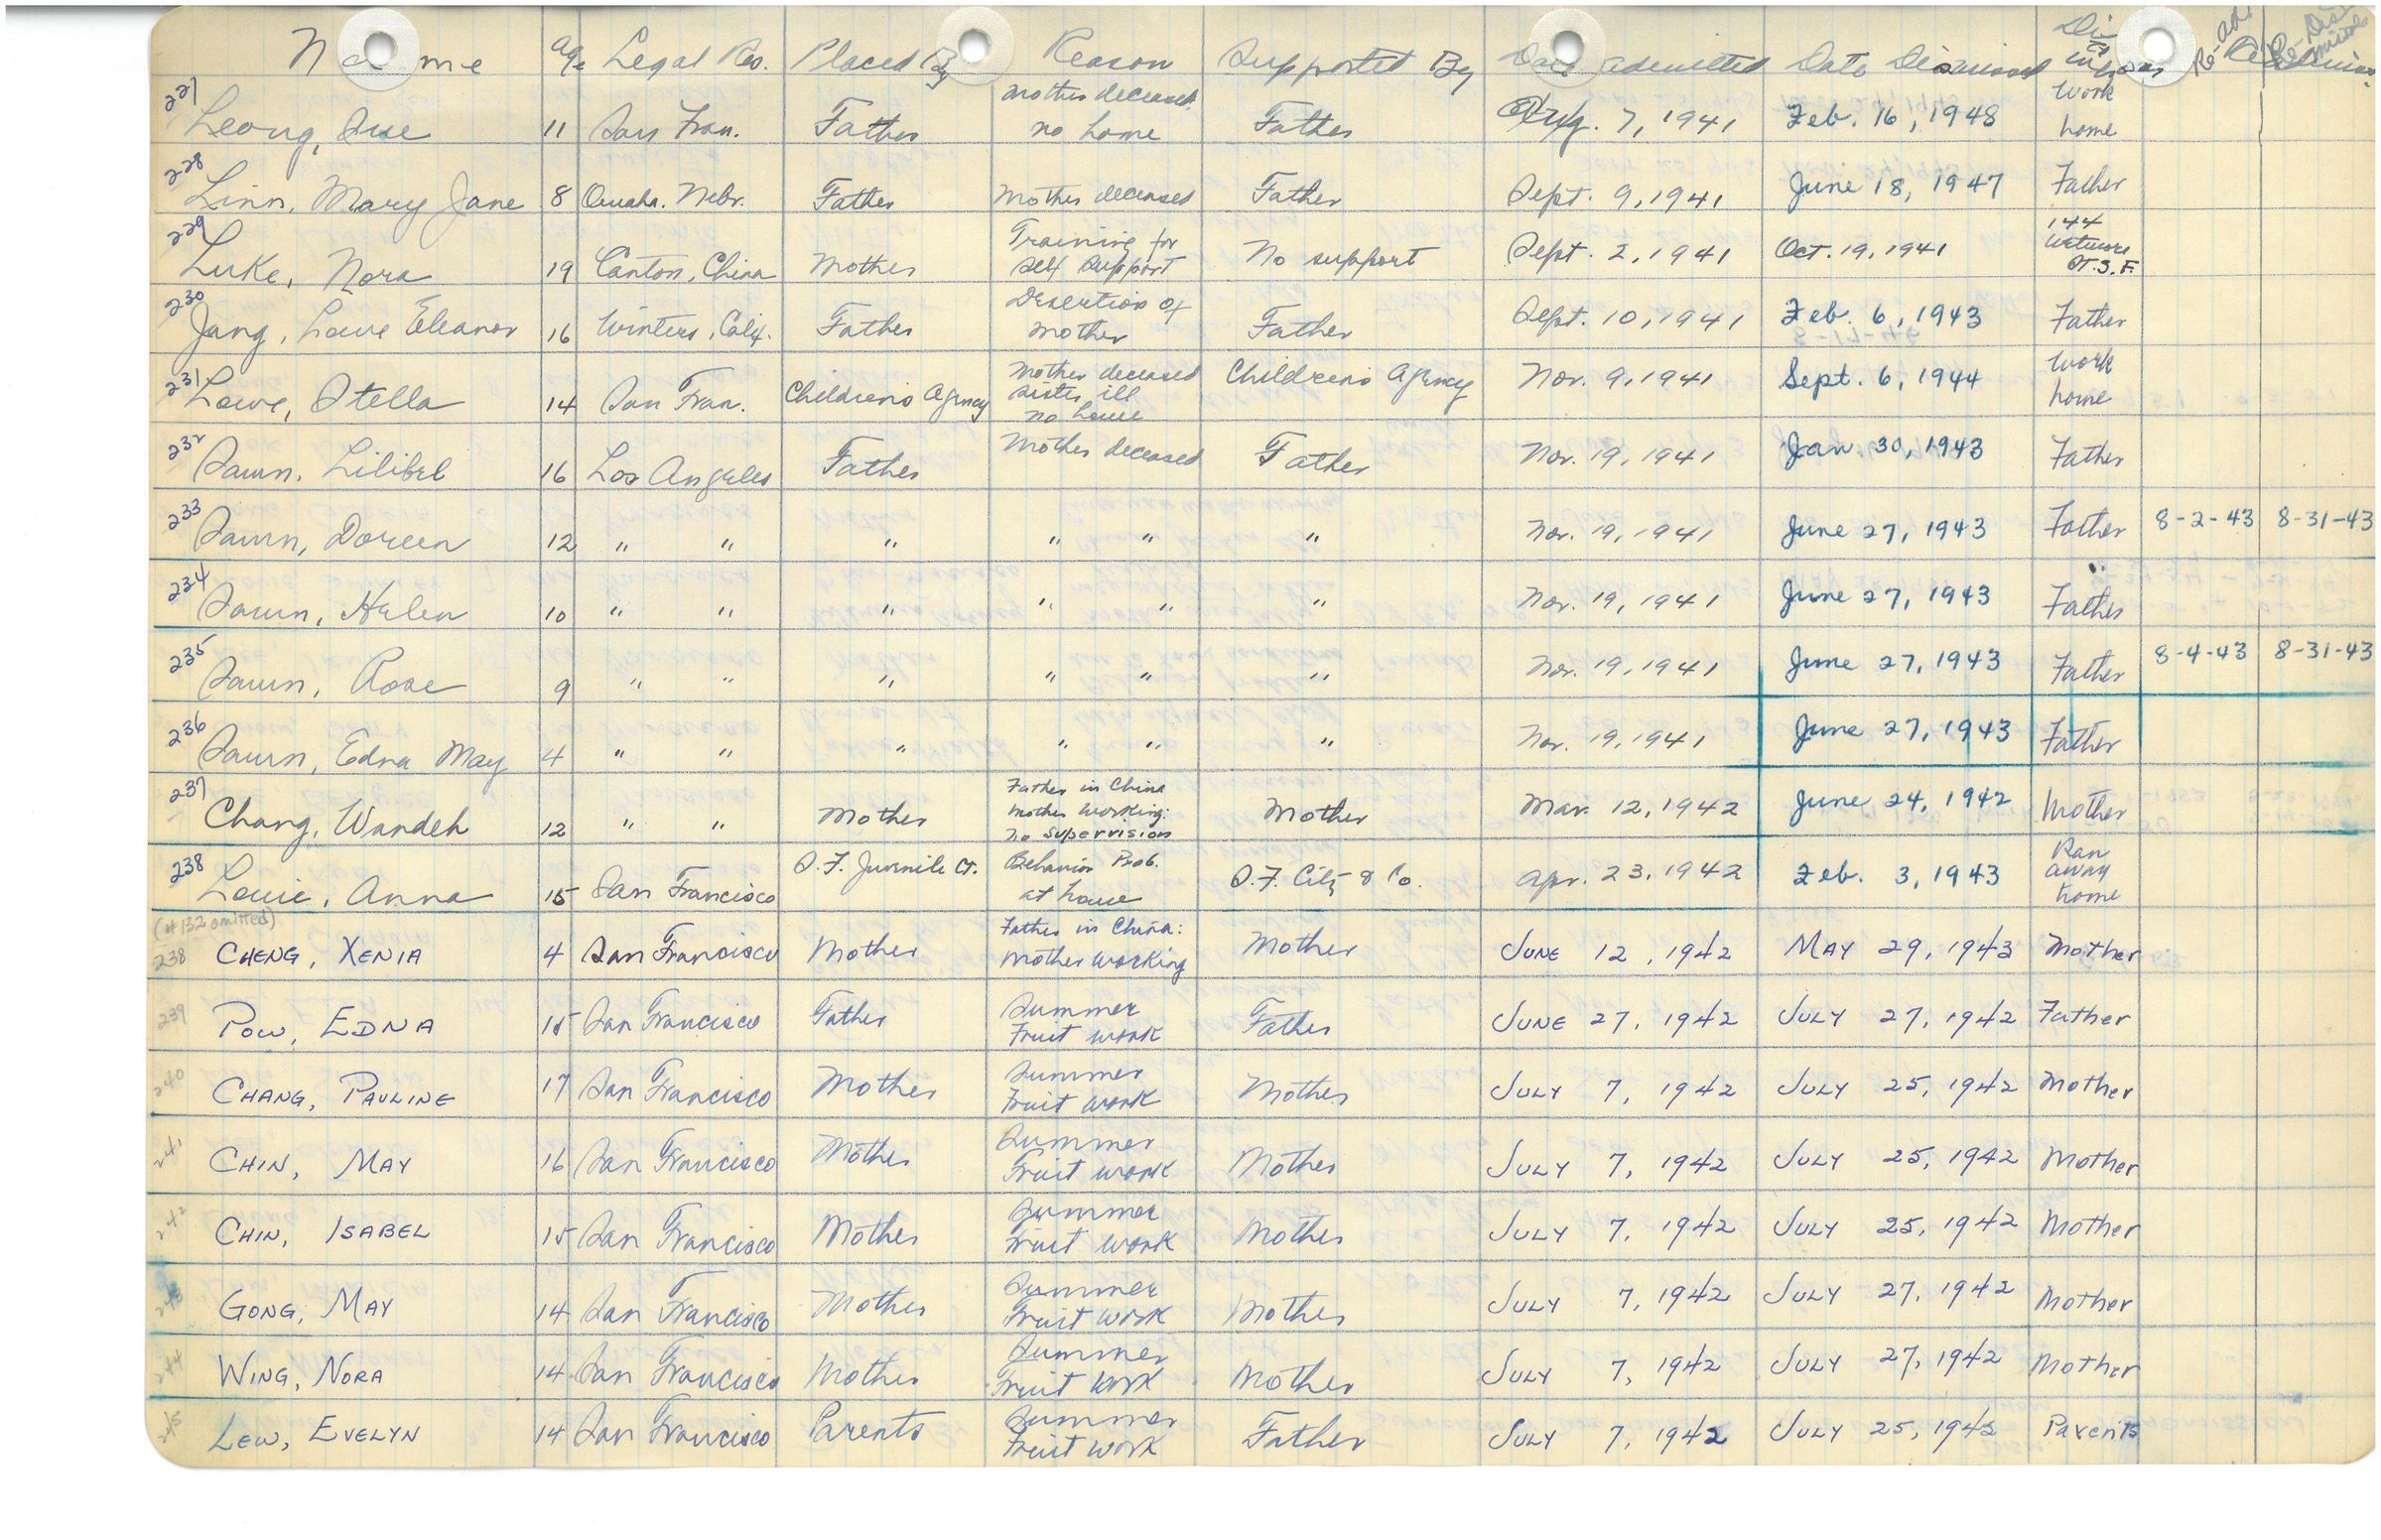 Name Age Legal Res. Placed By Reason Supported By Date Admitted Date Dismissed
227 Leong, Sue 11 San Fran. Father Mother deceased no home Father Aug. 7, 1941 Feb. 16, 1948 Work home
228 Linn, Mary Jane 8 Omaha. Nebr. Father Mother deceased Father Sept. 9, 1941 June 18, 1947 Father
229 Luke, Nora 19 Canton, China Mother Training for self support No support Sept. 2, 1941 Oct. 19, 1941 144 Wetmore St. S.F.
230 Jang, Lowe Eleanor 16 Winters, Calif. Father Desertion of mother Father Sept. 10, 1941 Feb. 6, 1943 Father
231 Lowe, Stella 14 San Fran. Children's Agency Mother deceased sister ill no home Children's Agency Nov. 9, 1941 Sept. 6, 1944 Work home
232 Sawn, Lilibel 16 Los Angeles Father Mother deceased Father Nov. 19, 1941 Jan. 30, 1943 Father
233 Sawn, Doreen 12 " " " " " " Nov. 19, 1941 June 27, 1943 Father 8-2-43 8-31-43
234 Sawn, Helen 10 " " " " " " Nov. 19, 1941 June 27, 1943 Father
235 Sawn, Rose 9 " " " " " " Nov. 19, 1941 June 27, 1943 Father 8-4-43 8-31-43
236 Sawn, Edna May 4 " " " " " " Nov. 19, 1941 June 27, 1943 Father
237 Chang, Wandeh 12 " " Mother Father in China Mother working: no supervision Mother Mar. 12, 1942 June 24, 1942 Mother
238 Louie, Anna 15 San Francisco S.F. Juvenile Ct. Behavior Prob. at home S.F. City & Co. Apr. 23, 1942 Feb. 3, 1943 Ran away home
(#132 omitted)
238 CHENG, XENIA 4 San Francisco Mother Father in China: Mother working Mother JUNE 12, 1942 MAY 29, 1943 Mother
239 POW, EDNA 15 San Francisco Father Summer Fruit work Father JUNE 27, 1942 JULY 27, 1942 Father
240 CHANG, PAULINE 17 San Francisco Mother Summer Fruit work Mother JULY 7, 1942 JULY 25, 1942 Mother
241 CHIN, MAY 16 San Francisco Mother Summer Fruit work Mother JULY 7, 1942 JULY 25, 1942 Mother
242 CHIN, ISABEL 15 San Francisco Mother Summer Fruit work Mother JULY 7, 1942 JULY 25, 1942 Mother
243 GONG, MAY 14 San Francisco Mother Summer Fruit work Mother JULY 7, 1942 JULY 27, 1942 Mother
244 WING, NORA 14 San Francisco Mother Summer Fruit work Mother JULY 7, 1942 JULY 27, 1942 Mother
245 LEW, EVELYN 14 San Francisco Parents Summer Fruit work Father JULY 7, 1942 JULY 25, 1942 Parents